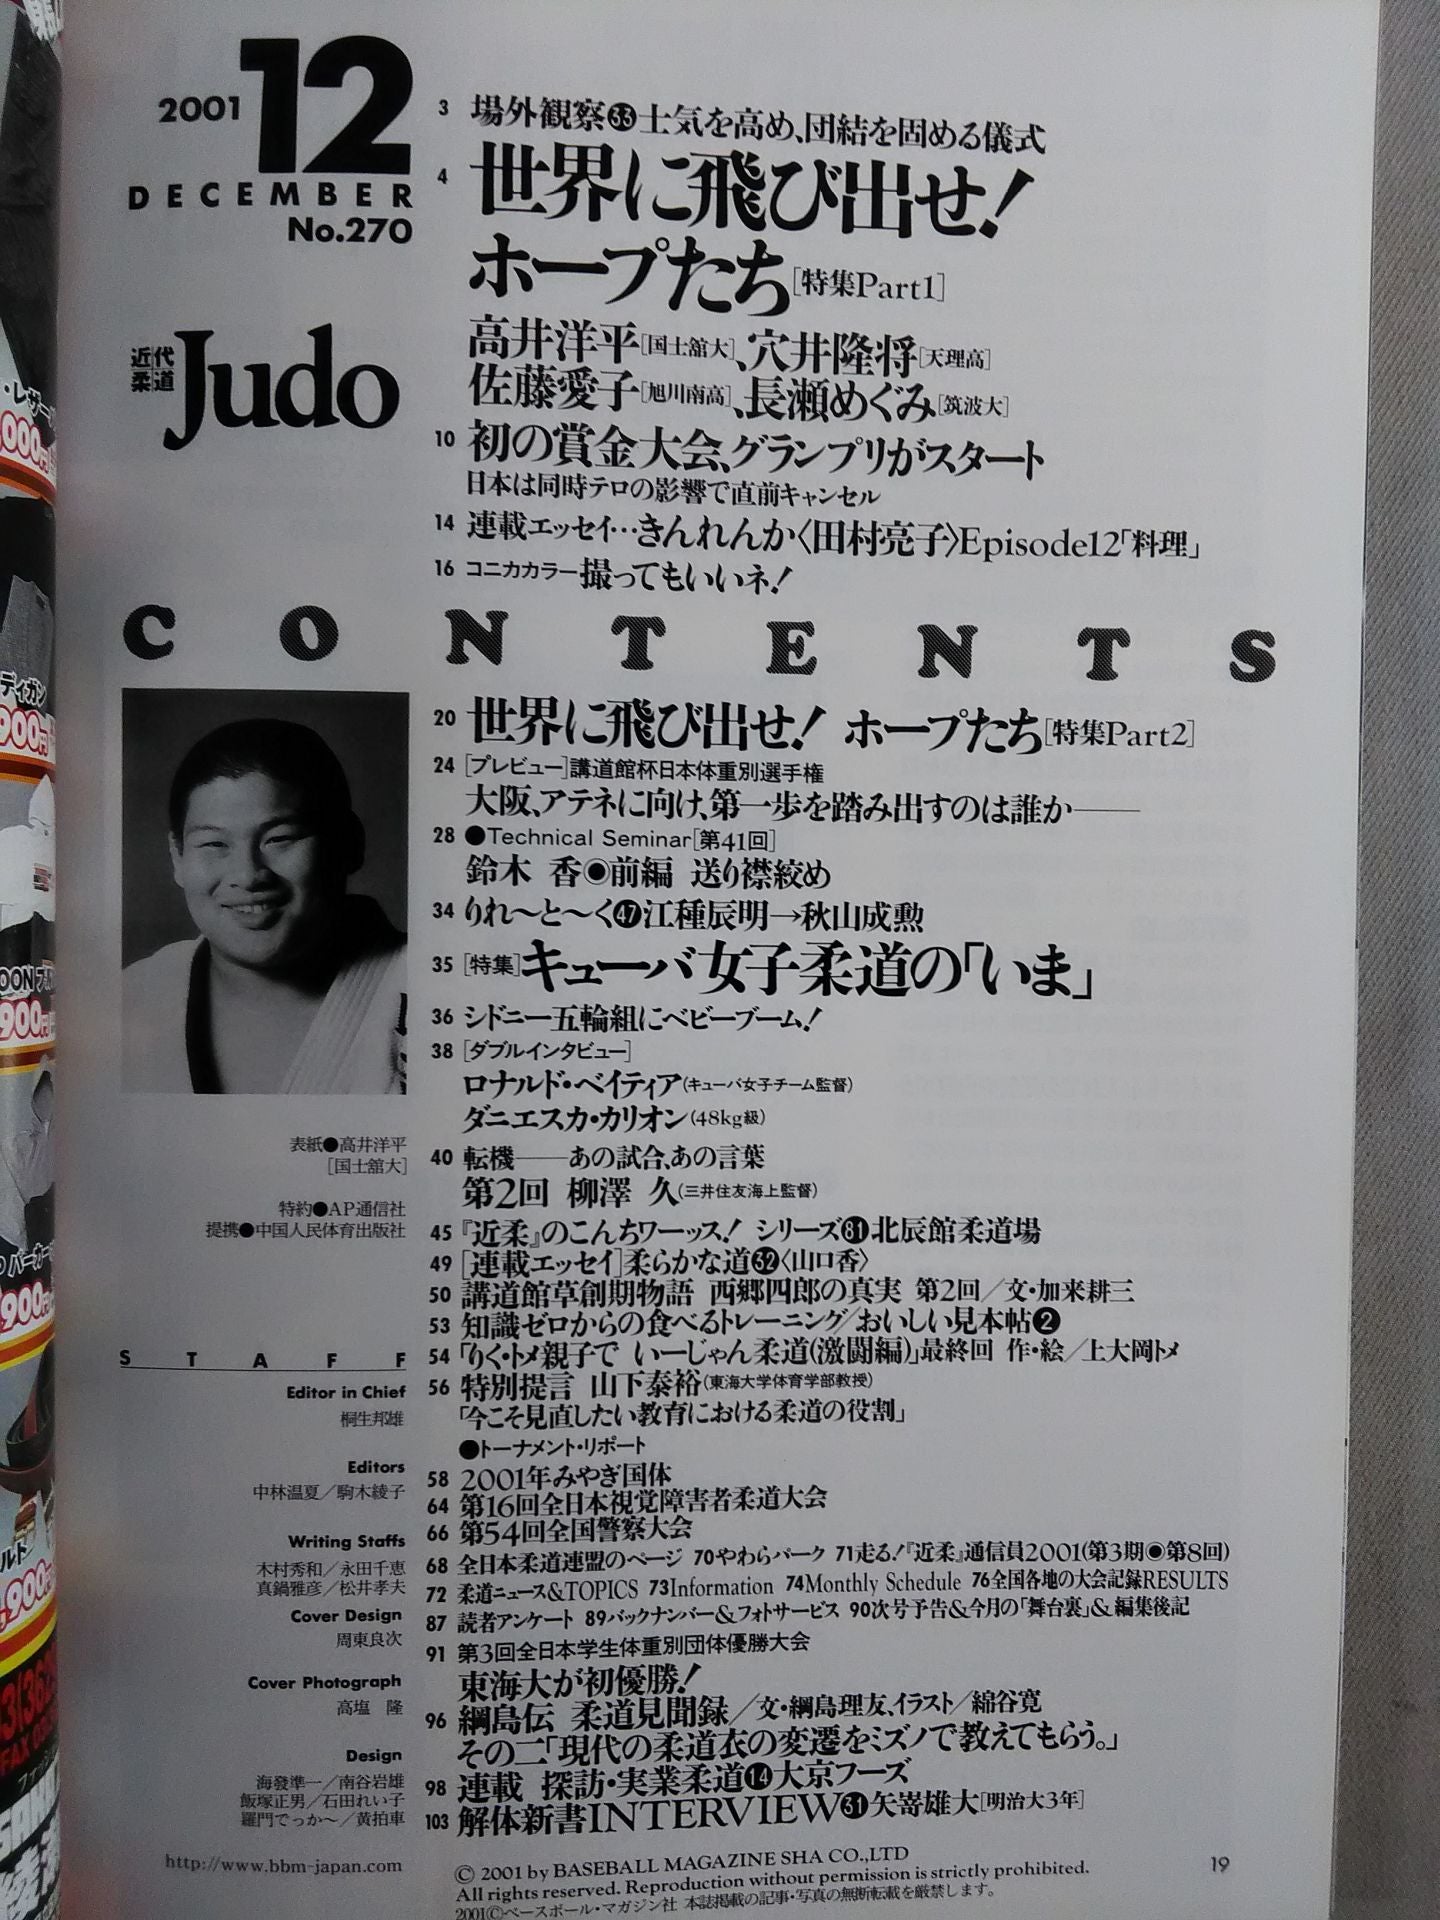 2001 12
DECEMBER
No.270
近代柔道 Judo
3 場外観察㉝士気を高め、団結を固める儀式
4 世界に飛び出せ!
ホープたち[特集Part1]
高井洋平[国士舘大]、穴井隆将[天理高]
佐藤愛子[旭川南高]、長瀬めぐみ[筑波大]
10 初の賞金大会、グランプリがスタート
日本は同時テロの影響で直前キャンセル
14 連載エッセイ…きんれんか〈田村亮子〉Episode12「料理」
16 コニカカラー撮ってもいいネ!
CONTENTS
20 世界に飛び出せ! ホープたち[特集Part2]
24 [プレビュー]講道館杯日本体重別選手権
大阪、アテネに向け、第一歩を踏み出すのは誰か――
28 ●Technical Seminar[第41回]
鈴木 香◉前編 送り襟絞め
34 りれ〜と〜く㊼江種辰明→秋山成勲
35 [特集]キューバ女子柔道の「いま」
36 シドニー五輪組にベビーブーム!
38 [ダブルインタビュー]
ロナルド・ベイティア(キューバ女子チーム監督)
ダニエスカ・カリオン(48kg級)
40 転機――あの試合、あの言葉
第2回 柳澤 久(三井住友海上監督)
45 『近柔』のこんちワーッス! シリーズ81北辰館柔道場
49 [連載エッセイ]柔らかな道㉜〈山口香〉
50 講道館草創期物語 西郷四郎の真実 第2回/文・加来耕三
53 知識ゼロからの食べるトレーニング/おいしい見本帖❷
54 「りく・トメ親子で いーじゃん柔道(激闘編)」最終回 作・絵/上大岡トメ
56 特別提言 山下泰裕(東海大学体育学部教授)
「今こそ見直したい教育における柔道の役割」
●トーナメント・リポート
58 2001年みやぎ国体
64 第16回全日本視覚障害者柔道大会
66 第54回全国警察大会
68 全日本柔道連盟のページ 70やわらパーク 71走る!『近柔』通信員2001(第3期◉第8回)
72 柔道ニュース&TOPICS 73Information 74Monthly Schedule 76全国各地の大会記録RESULTS
87 読者アンケート 89バックナンバー&フォトサービス 90次号予告&今月の「舞台裏」&編集後記
91 第3回全日本学生体重別団体優勝大会
東海大が初優勝!
96 綱島伝 柔道見聞録/文・綱島理友、イラスト/綿谷寛
その二「現代の柔道衣の変遷をミズノで教えてもらう。」
98 連載 探訪・実業柔道⓮大京フーズ
103 解体新書INTERVIEW㉛矢嵜雄大[明治大3年]
表紙●高井洋平
[国士舘大]
特約●AP通信社
提携●中国人民体育出版社
STAFF
Editor in Chief
桐生邦雄
Editors
中林温夏/駒木綾子
Writing Staffs
木村秀和/永田千恵
真鍋雅彦/松井孝夫
Cover Design
周東良次
Cover Photograph
高塩 隆
Design
海發準一/南谷岩雄
飯塚正男/石田れい子
羅門でっか〜/黄拍車
http://www.bbm-japan.com
© 2001 by BASEBALL MAGAZINE SHA CO.,LTD
All rights reserved. Reproduction without permission is strictly prohibited.
2001©ベースボール・マガジン社 本誌掲載の記事・写真の無断転載を厳禁します。
19